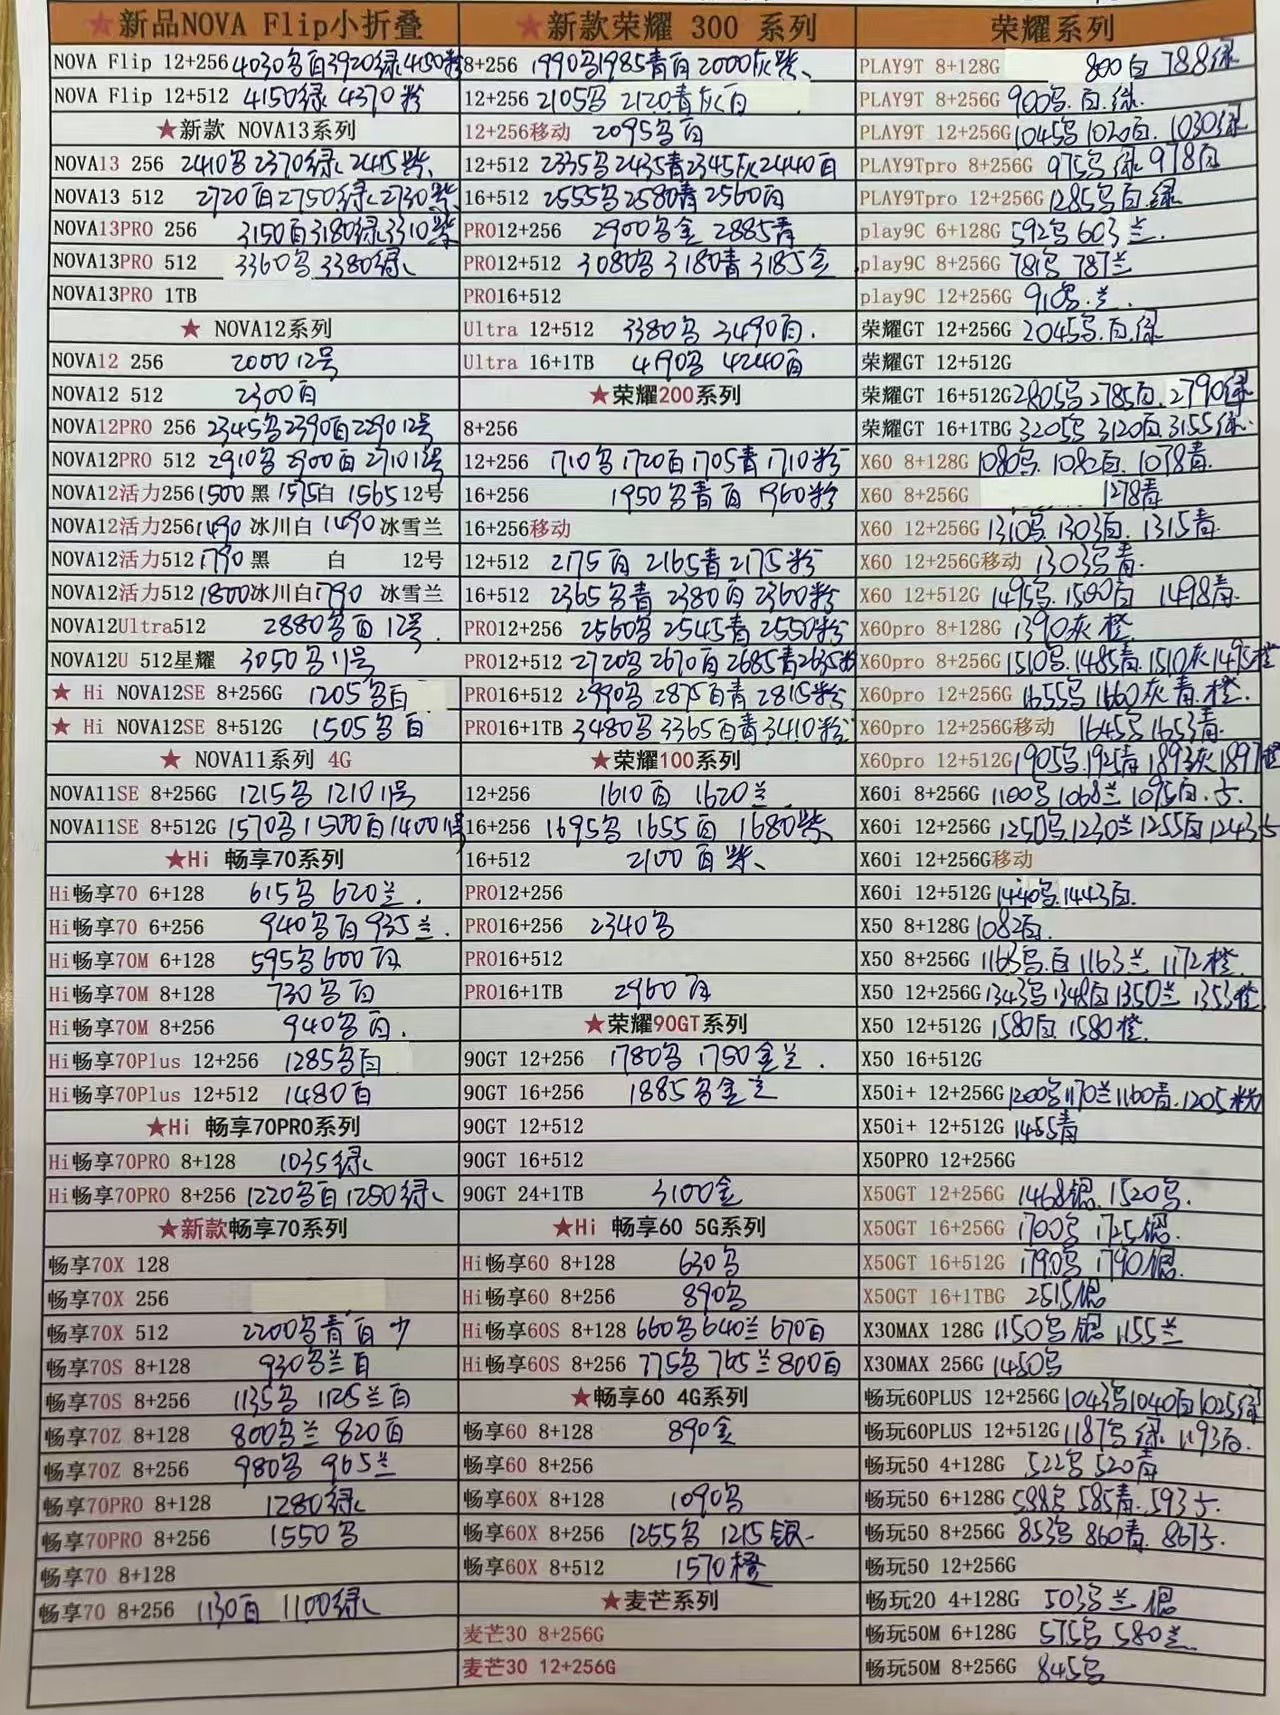 ★新品NOVA Flip小折叠
NOVA Flip 12+256 4030乌白3920绿4150粉
NOVA Flip 12+512 4150绿 4370粉
★新款 NOVA13系列
NOVA13 256 2410乌2370绿 2415紫
NOVA13 512 2720白2750绿2730紫
NOVA13PRO 256 3150白3180绿3310紫
NOVA13PRO 512 3360乌 3380绿
NOVA13PRO 1TB
★ NOVA12系列
NOVA12 256 2000 12号
NOVA12 512 2300白
NOVA12PRO 256 2345乌2390白2290 12号
NOVA12PRO 512 2910乌 2900白 2710 12号
NOVA12活力256 1500 黑 1575白 1565 12号
NOVA12活力256 1490 冰川白 1490 冰雪兰
NOVA12活力512 1790 黑 白 12号
NOVA12活力512 1800冰川白1790 冰雪兰
NOVA12Ultra512 2880乌白 12号
NOVA12U 512星耀 3050乌 11号
★ Hi NOVA12SE 8+256G 1205乌白
★ Hi NOVA12SE 8+512G 1505乌白
★ NOVA11系列 4G
NOVA11SE 8+256G 1215乌 1210 11号
NOVA11SE 8+512G 1570乌1500白1400 11号
★Hi 畅享70系列
Hi畅享70 6+128 615乌 620兰
Hi畅享70 6+256 940乌白 935兰
Hi畅享70M 6+128 595乌600白
Hi畅享70M 8+128 730乌白
Hi畅享70M 8+256 940乌白
Hi畅享70Plus 12+256 1285乌白
Hi畅享70Plus 12+512 1480白
★Hi 畅享70PRO系列
Hi畅享70PRO 8+128 1035绿
Hi畅享70PRO 8+256 1220乌白1250绿
★新款畅享70系列
畅享70X 128
畅享70X 256
畅享70X 512 2200乌青白少
畅享70S 8+128 930乌兰白
畅享70S 8+256 1135乌 1125兰白
畅享70Z 8+128 800乌兰 820白
畅享70Z 8+256 980乌 965兰
畅享70PRO 8+128 1280绿
畅享70PRO 8+256 1550乌
畅享70 8+128
畅享70 8+256 1130白 1100绿
★新款荣耀 300 系列
8+256 1990乌1985青白2000灰紫
12+256 2105乌 2120青灰白
12+256移动 2095乌白
12+512 2335乌2435青2345灰2440白
16+512 2555乌2580青2560白
PRO12+256 2900乌金 2885青
PRO12+512 3080乌 3180青 3185金
PRO16+512
Ultra 12+512 3380乌 3490白
Ultra 16+1TB 4190乌 4240白
★荣耀200系列
8+256
12+256 1710乌1720白1705青1710粉
16+256 1950乌青白 1960粉
16+256移动
12+512 2175白 2165青 2175粉
16+512 2365乌青 2380白 2360粉
PRO12+256 2560乌 2545青 2550粉
PRO12+512 2720乌2670白2685青2635粉
PRO16+512 2990乌 2875白青 2815粉
PRO16+1TB 3480乌 3365白青3410粉
★荣耀100系列
12+256 1610白 1620兰
16+256 1695乌 1655白 1680紫
16+512 2100白紫
PRO12+256
PRO16+256 2340乌
PRO16+512
PRO16+1TB 2960白
★荣耀90GT系列
90GT 12+256 1780乌 1750金兰
90GT 16+256 1885乌金兰
90GT 12+512
90GT 16+512
90GT 24+1TB 3100金
★Hi 畅享60 5G系列
Hi畅享60 8+128 630乌
Hi畅享60 8+256 890乌
Hi畅享60S 8+128 660乌640兰 670白
Hi畅享60S 8+256 775乌 765兰800白
★畅享60 4G系列
畅享60 8+128 890金
畅享60 8+256
畅享60X 8+128 1090乌
畅享60X 8+256 1255乌 1215银
畅享60X 8+512 1570橙
★麦芒系列
麦芒30 8+256G
麦芒30 12+256G
荣耀系列
PLAY9T 8+128G 800白 788绿
PLAY9T 8+256G 900乌.白.绿
PLAY9T 12+256G 1045乌 1020白. 1030绿
PLAY9Tpro 8+256G 975乌绿 978白
PLAY9Tpro 12+256G 1285乌白绿
play9C 6+128G 592乌 603兰
play9C 8+256G 781乌 787兰
play9C 12+256G 910乌.兰
荣耀GT 12+256G 2045乌.白.绿
荣耀GT 12+512G
荣耀GT 16+512G 2805乌 2785白.2790绿
荣耀GT 16+1TBG 3205乌 3120白.3155绿
X60 8+128G 1080乌.1082白.1078青
X60 8+256G 1278青
X60 12+256G 1310乌.1303白.1315青
X60 12+256G移动 1303乌青
X60 12+512G 1495乌.1500白 1498青
X60pro 8+128G 1390灰 橙
X60pro 8+256G 1510乌.1485青.1510灰1495橙
X60pro 12+256G 1655乌 1660灰 青.橙
X60pro 12+256G移动 1645乌 1653青
X60pro 12+512G 1905乌.1925青 1893灰1897橙
X60i 8+256G 1100乌 1068兰 1095白.
X60i 12+256G 1250乌.1230兰1255白1243
X60i 12+256G移动
X60i 12+512G 1440乌.1443白
X50 8+128G 1082白
X50 8+256G 1163乌.白 1163兰 1172橙
X50 12+256G 1343乌 1348白1350兰 1353橙
X50 12+512G 1580白 1580橙
X50 16+512G
X50i+ 12+256G 1200乌1170兰1160青.1205粉
X50i+ 12+512G 1455青
X50PRO 12+256G
X50GT 12+256G 1468银.1520乌
X50GT 16+256G 1700乌 1725银
X50GT 16+512G 1790乌 1790银
X50GT 16+1TBG 2515银
X30MAX 128G 1150乌.银 1155兰
X30MAX 256G 1450乌
畅玩60PLUS 12+256G 1043乌1040白1025绿
畅玩60PLUS 12+512G 1187乌 绿 1193白
畅玩50 4+128G 522乌 520青
畅玩50 6+128G 588乌 585青.593
畅玩50 8+256G 853乌 860青 867
畅玩50 12+256G
畅玩20 4+128G 503乌兰 银
畅玩50M 6+128G 575乌 580兰
畅玩50M 8+256G 845乌